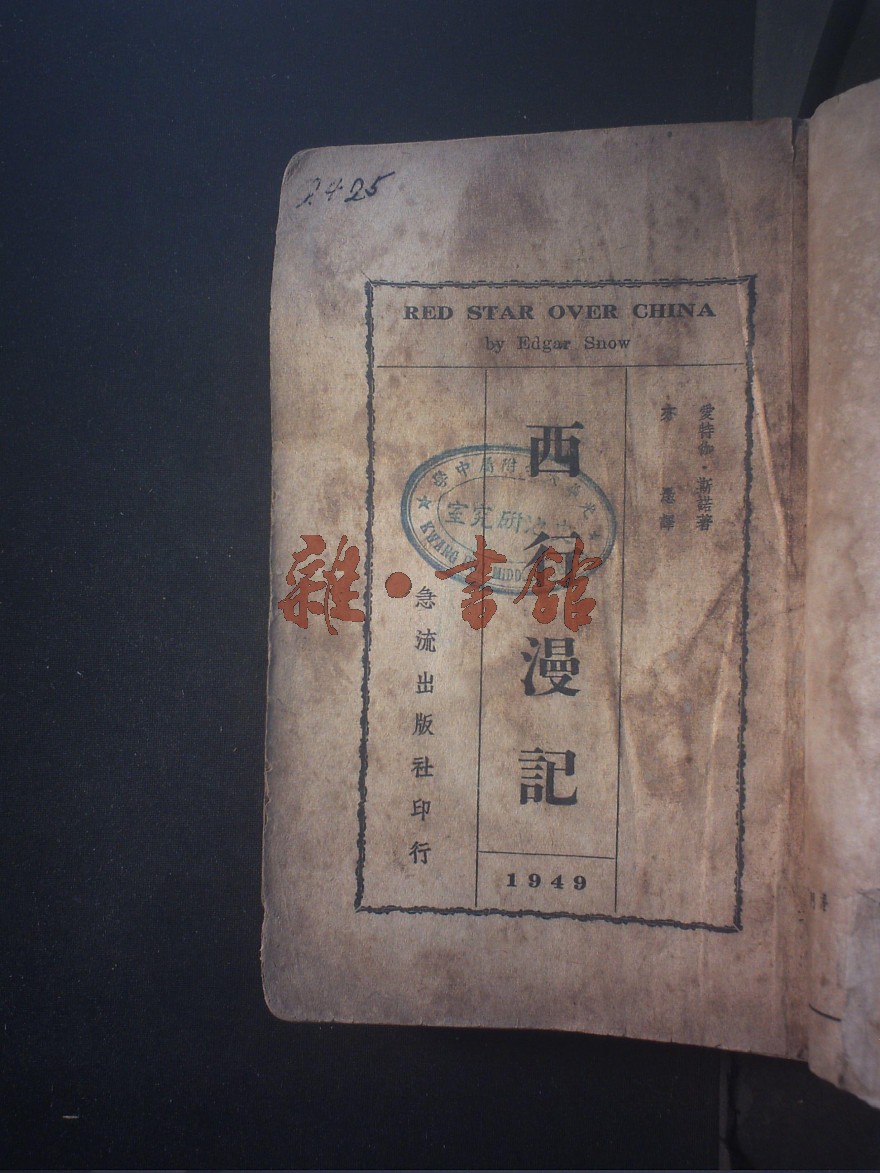 2425
RED STAR OVER CHINA
by Edgar Snow
愛特伽·斯諾著
亦 愚 譯
西行漫記
1949
急流出版社印行
附屬中學
研究室
KWANG
MIDD
雜·書館